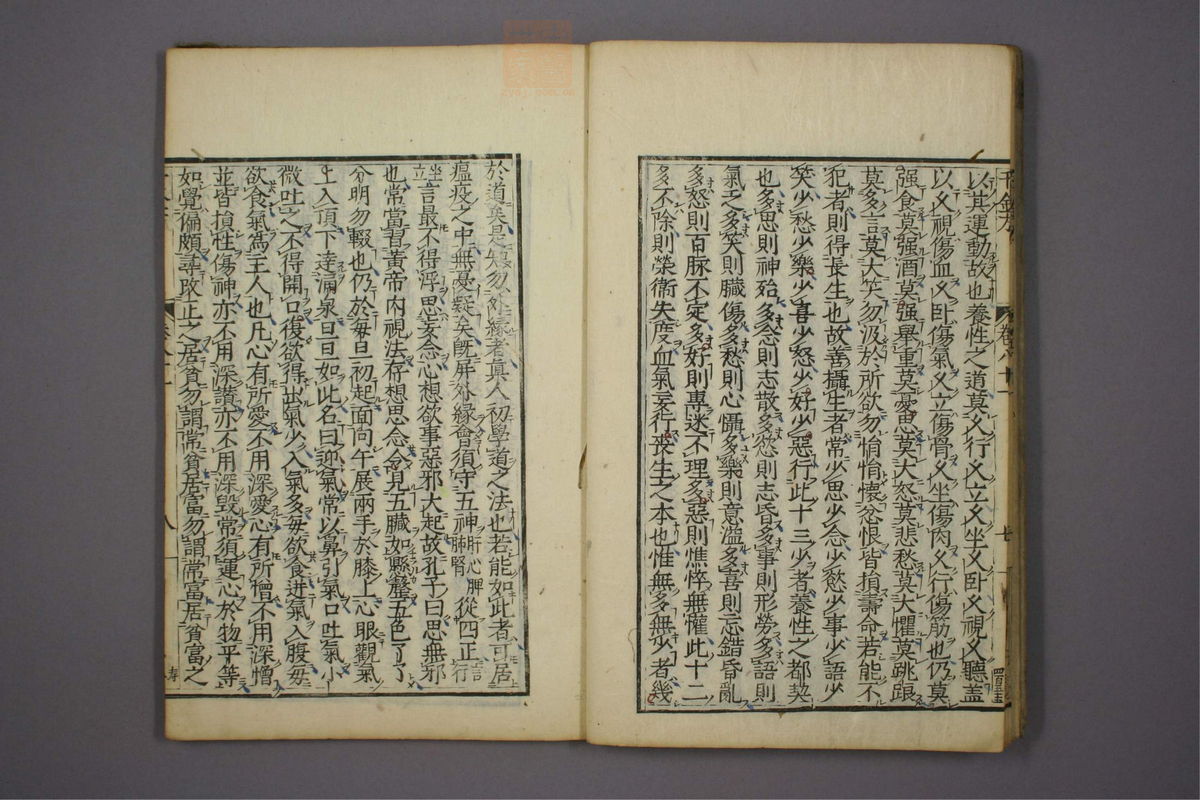 以其運動故也養性之道莫久行久立久坐久臥久視久聽蓋
以久視傷血久臥傷氣久立傷骨久坐傷肉久行傷筋也仍莫
强食莫强酒莫强舉重莫憂思莫大怒莫悲愁莫大懼莫跳踉
莫多言莫大笑勿汲汲於所欲勿悁悁懷忿恨皆損壽命若能不
犯者則得長生也故善攝生者常少思少念少慾少事少語少
笑少愁少樂少喜少怒少好少惡行此十三少者養性之都契
也多思則神殆多念則志散多慾則志昏多事則形勞多語則
氣乏多笑則臟傷多愁則心懾多樂則意溢多喜則忘錯昏亂
多怒則百脉不定多好則專迷不理多惡則憔悴無懽此十二
多不除則榮衞失度血氣妄行喪生之本也惟無多無少者幾
千金方
卷八十一
於道矣是知勿外緣者真人初學道之法也若能如此者可居
瘟疫之中無憂疑矣旣屏外緣會須守五神肝心脾肺腎從四正言行
坐立言最不得浮思妄念心想欲事惡邪大起故孔子曰思無邪
也常當習黃帝内視法存想思念令見五臟如懸磬五色了了
分明勿輟也仍於每旦初起面向午展兩手於膝上心眼觀氣
上入頂下達涌泉旦旦如此名曰迎氣常以鼻引氣口吐氣小
微吐之不得開口復欲得出氣少入氣多每欲食送氣入腹每
欲食氣爲主人也凡心有所愛不用深愛心有所憎不用深憎
並皆損性傷神亦不用深讚亦不用深毀常須運心於物平等
如覺偏頗尋改正之居貧勿謂常貧居富勿謂常富居貧富之